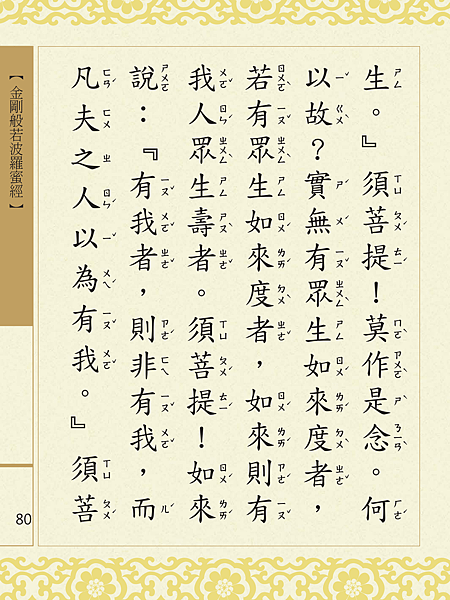 生。』須菩提！莫作是念。何
以故？實無有眾生如來度者，
若有眾生如來度者，如來則有
我人眾生壽者。須菩提！如來
說：『有我者，則非有我，而
凡夫之人以為有我。』須菩
【金剛般若波羅蜜經】
80